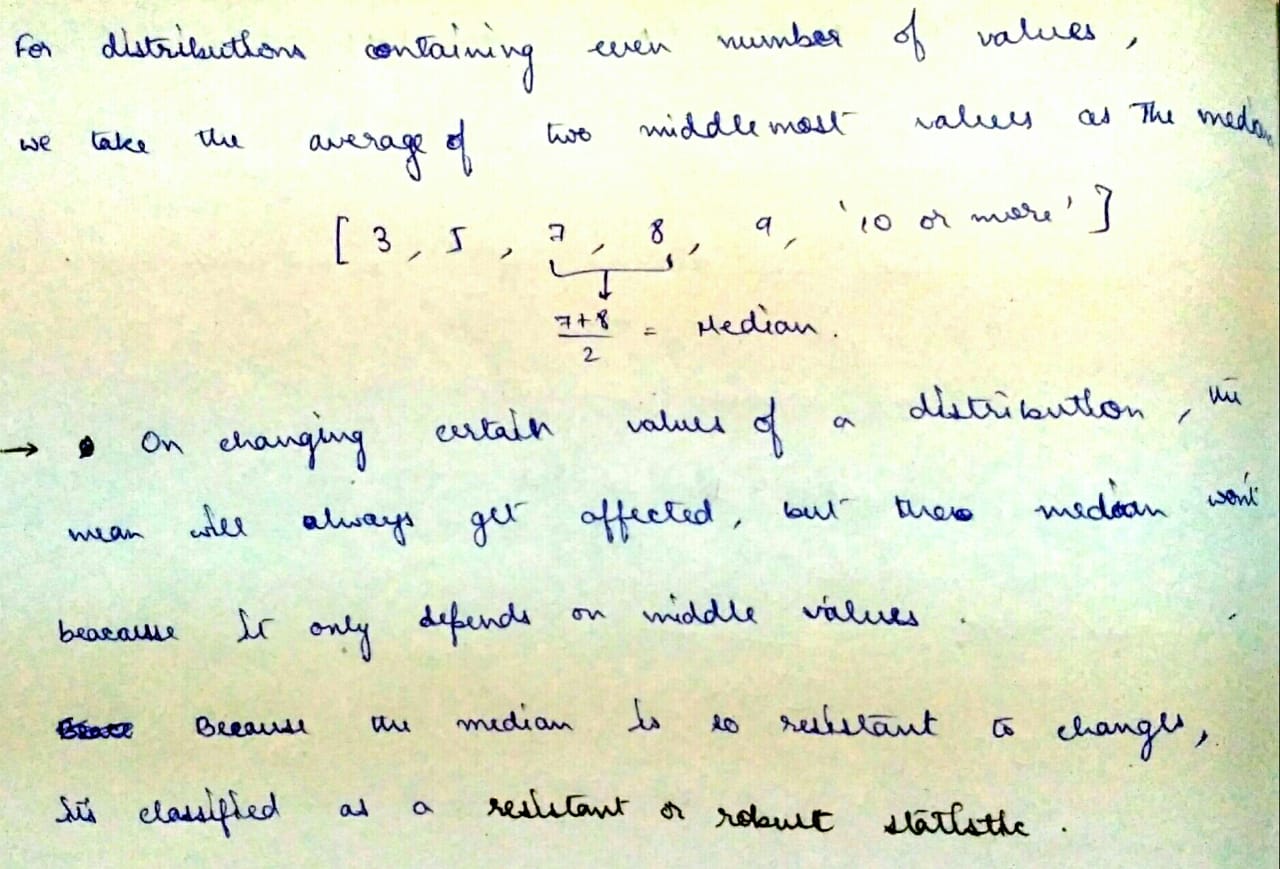 For distributions containing even number of values,
we take the average of two middlemost values as The median
[ 3, 5, 7, 8, 9, '10 or more' ]
7+8
2
= Median.
→ On changing certain values of a distribution, the
mean will always get affected, but the median won't
beacause it only depends on middle values.
Because the median is so resistant to changes,
it's classified as a resistant or robust statistic.